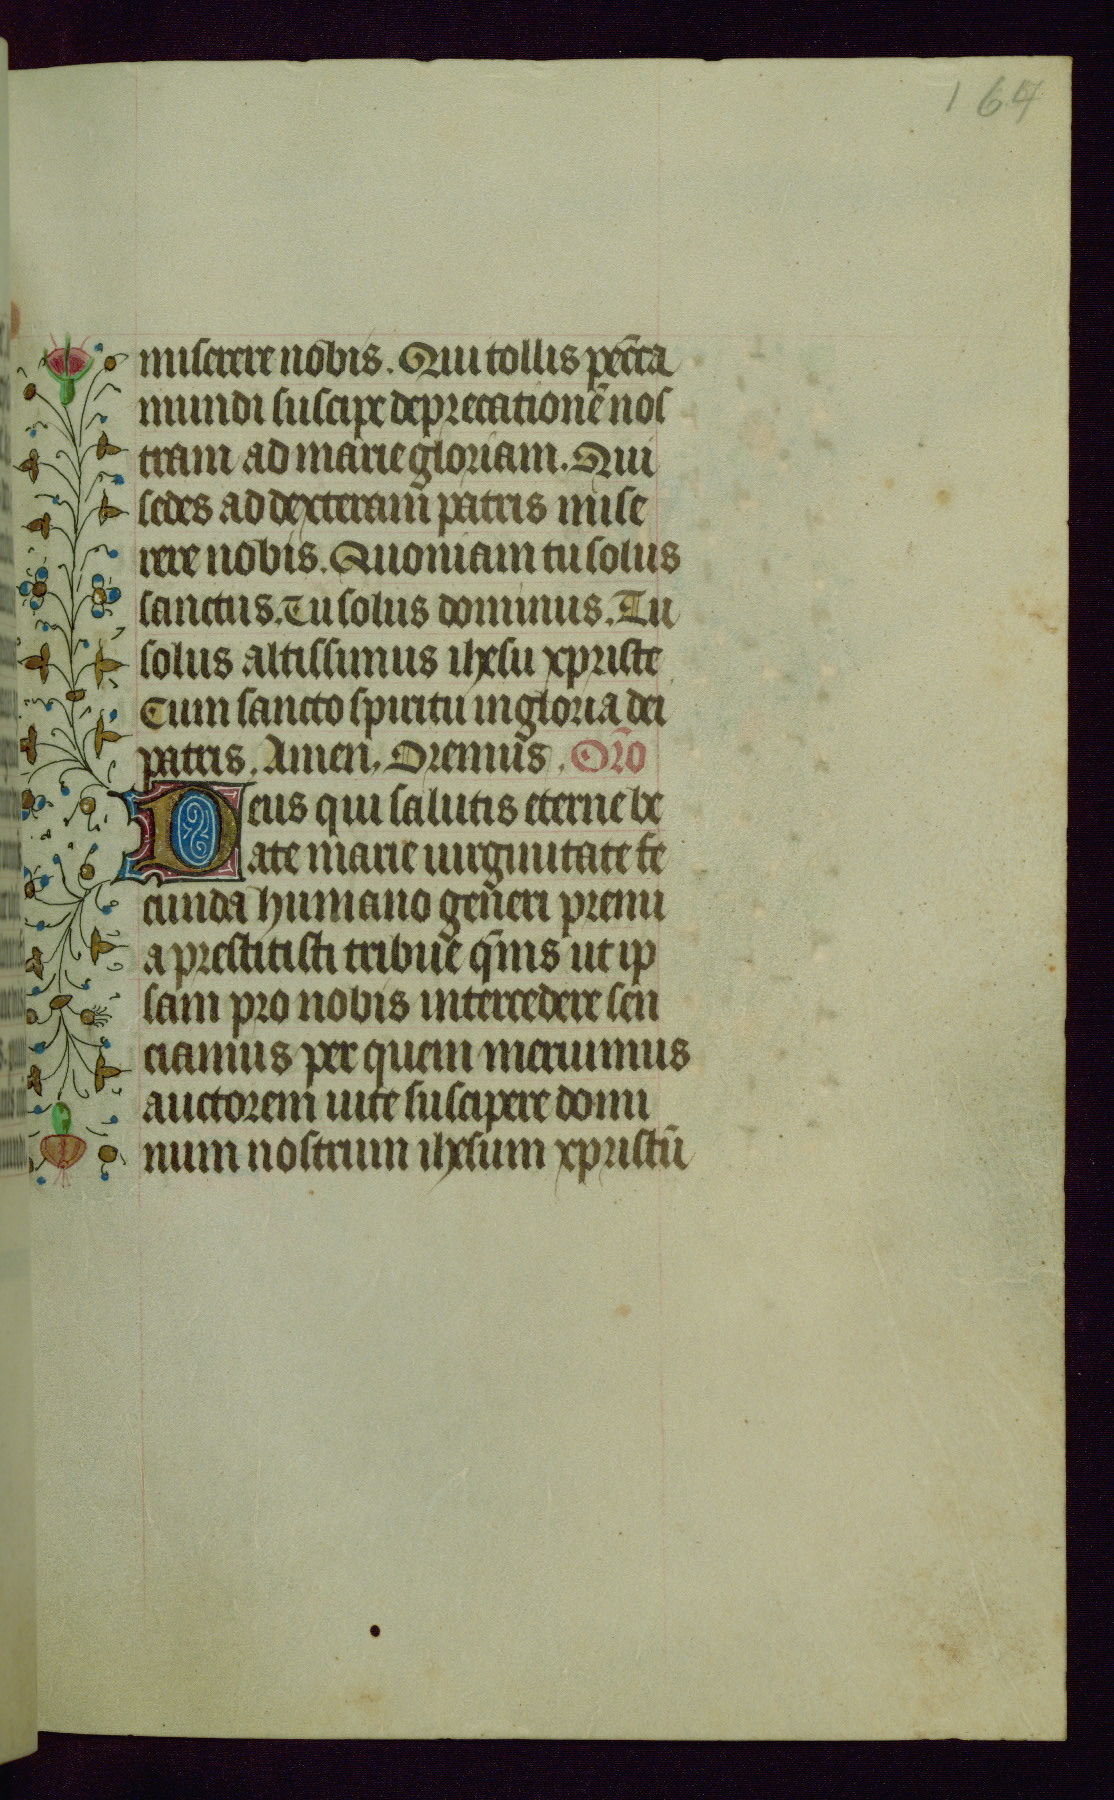 164
miserere nobis. Qui tollis pcc̄ta
mundi suscipe deprecationē nos
tram ad marie gloriam. Qui
sedes ad dexteram patris mise
rere nobis. Quoniam tu solus
sanctus. Tu solus dominus. Tu
solus altissimus ihesu xpriste
Cum sancto spiritu in gloria dei
patris. Amen. Oremus. Or̄o
Deus qui salutis eterne be
ate marie uirginitate fe
cunda humano generi premi
a prestitisti tribue q̄ms ut ip
sam pro nobis intercedere sen
ciamus per quem meruimus
auctorem uite suscipere domi
num nostrum ihesum xpristū